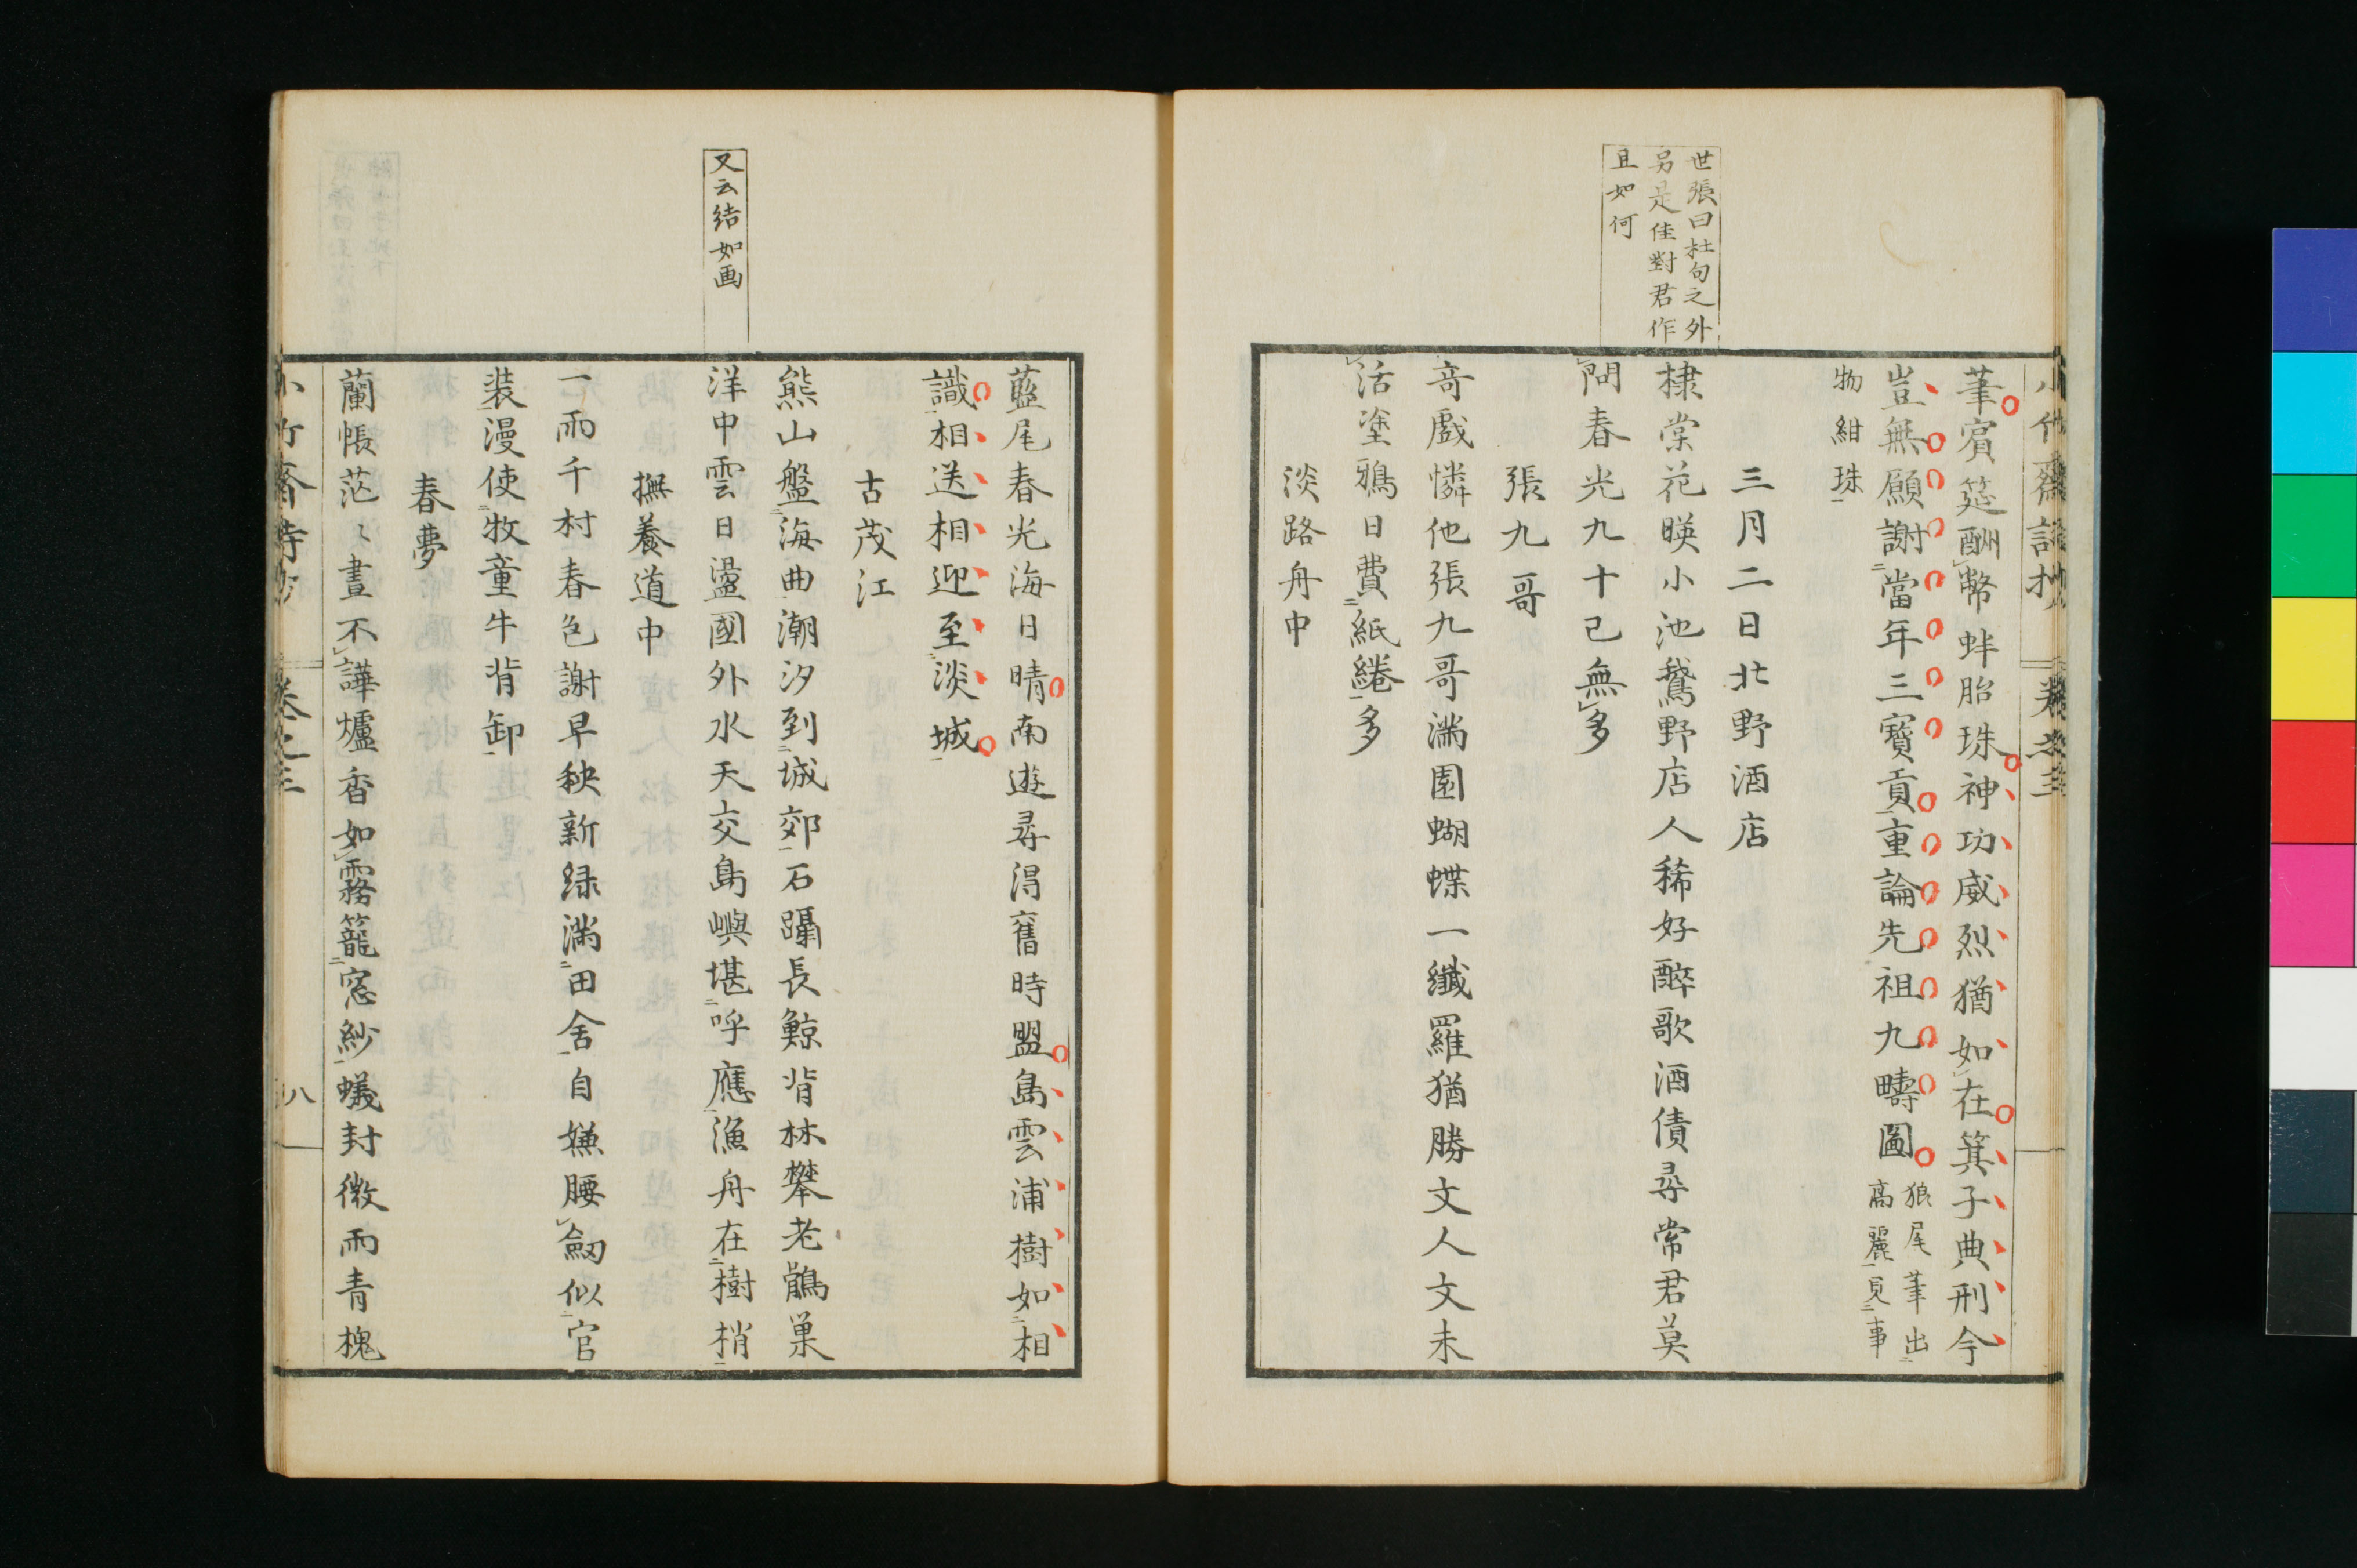 世張曰杜句之外
另是佳對君作
且如何
小竹齋詩抄 卷之三
筆賓筵酬幣蚌胎珠神功威烈猶如在箕子典刑今
豈無願謝當年三寶貢重論先祖九疇圖 狼尾筆出
高麗貢事
物紺珠
三月二日北野酒店
棣棠花暎小池鵞野店人稀好醉歌酒債尋常君莫
問春光九十已無多
張九哥
奇戲憐他張九哥滿園蝴蝶一纖羅猶勝文人文未
活塗鴉日費紙綣多
淡路舟中
又云結如画
藍尾春光海日晴南遊尋得舊時盟島雲浦樹如相
識相送相迎至淡城
古茂江
熊山盤海曲潮汐到城郊石躡長鯨背林攀老鶻巢
洋中雲日盪國外水天交島嶼堪呼應漁舟在樹梢
撫養道中
一雨千村春色謝早秧新緑滿田舍自嫌腰劒似官
装漫使牧童牛背卸
春夢
蘭帳茫〻晝不譁爐香如霧籠窓紗蟻封微雨青槐
小竹齋詩抄 卷之三 八